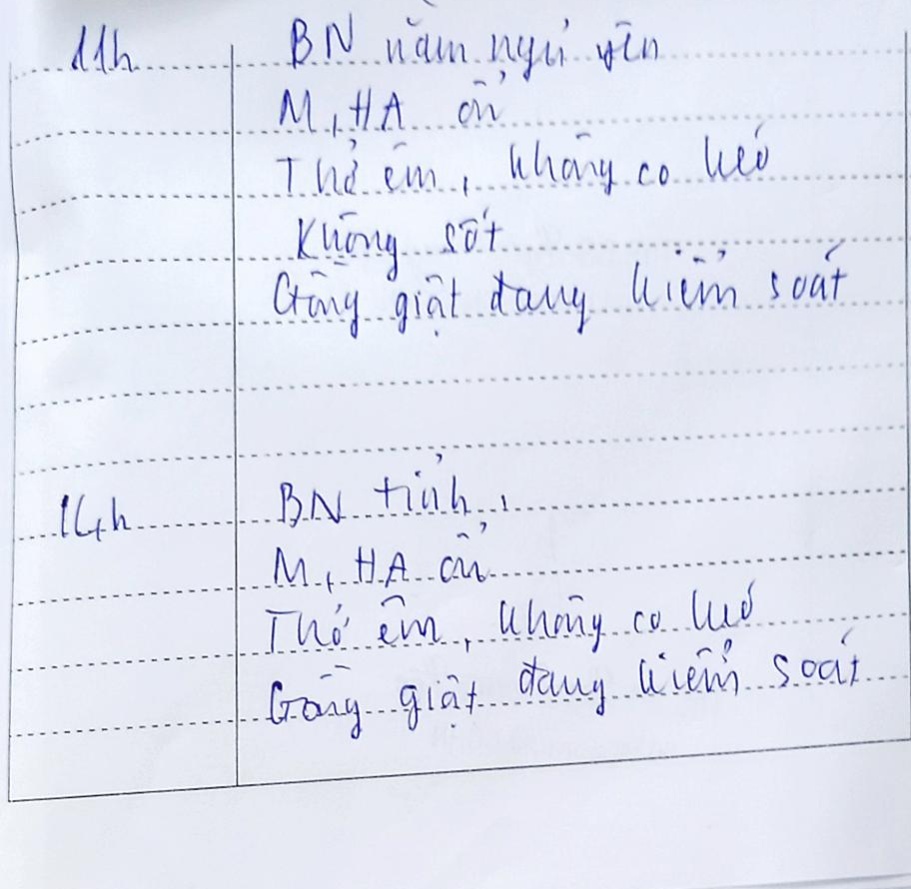 11h BN nằm ngủ yên
M, HA ổn
Thở êm, không co kéo
Không sốt
Gồng giật đang kiểm soát
14h BN tỉnh,
M, HA ổn
Thở êm, không co kéo
Gồng giật đang kiểm soát